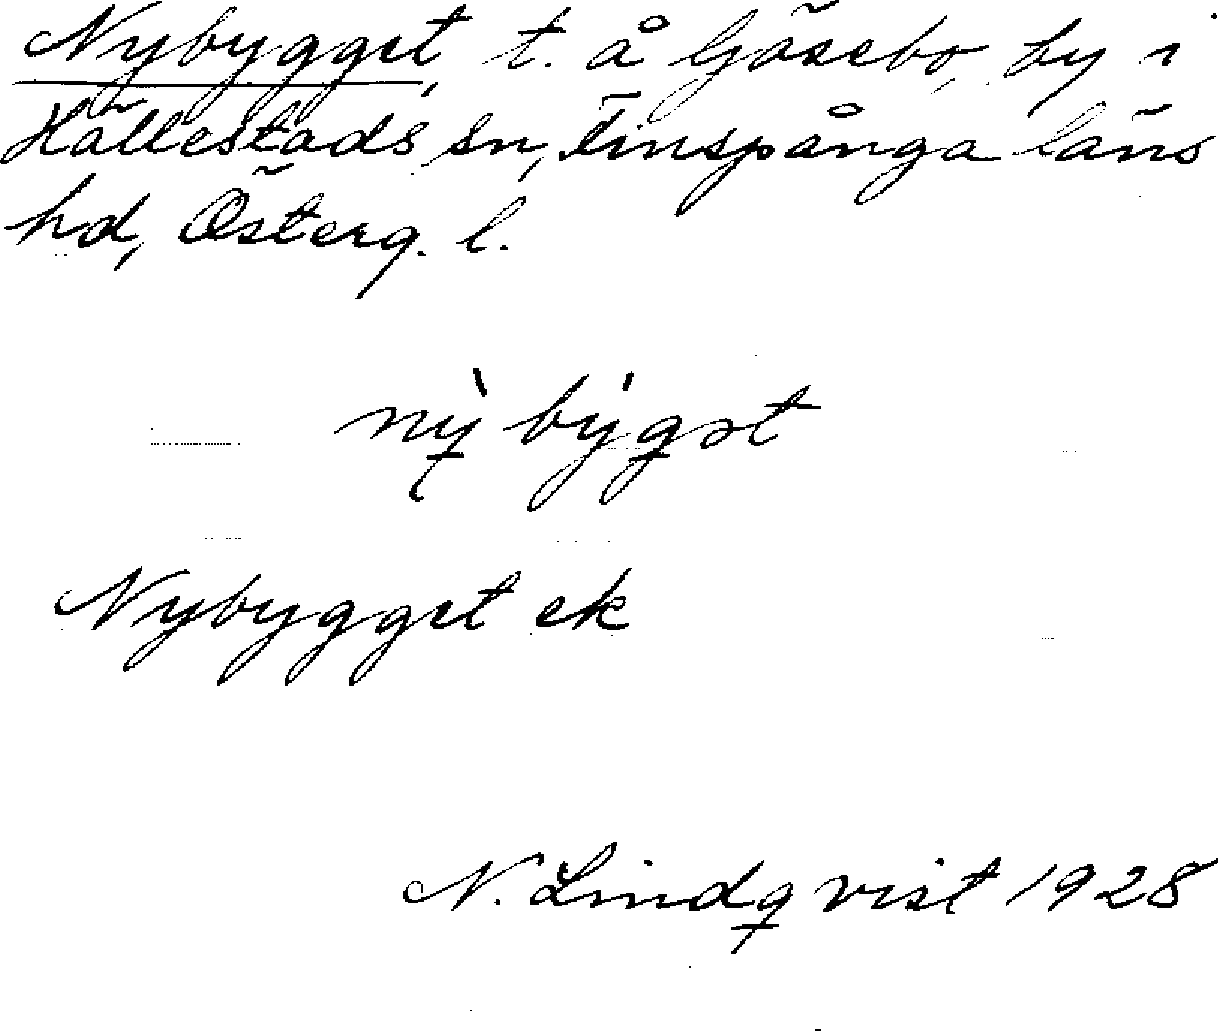 Nybygget, t. å Gäsebo, by i
Hällestads sn, Finspånga läns
hd, Österg. l.
nỳ býgət
Nybygget ek
N. Lindqvist 1928